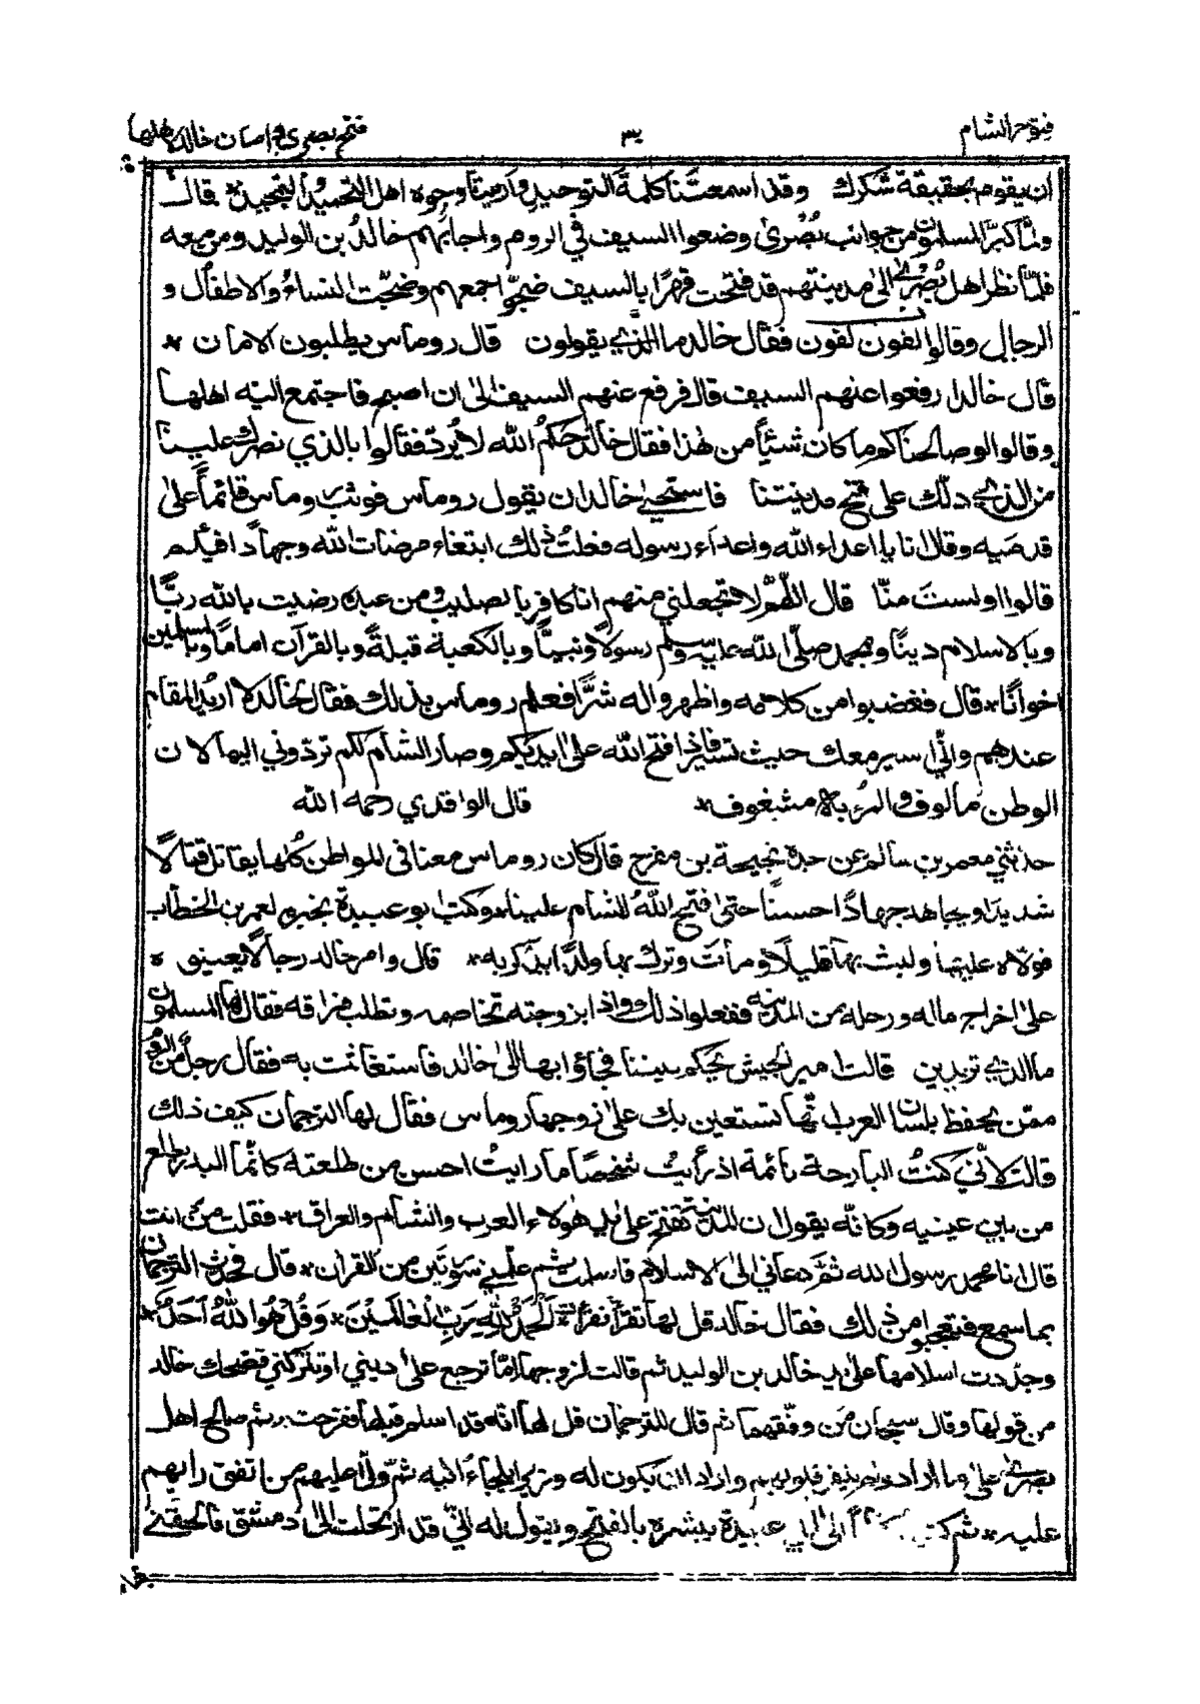 فتوح الشام ٣٠ فتح بصرى و امان خالد لاهلها
ان يقوم بحقيقة شكرك وقد اسمعتنا كلمة التوحيد واريتنا وجوه اهل التحميد والتمجيد * قال
ولمّا كبّر المسلمون من جوانب بُصْرىٰ وضعوا السيف في الروم واجابهم خالدُ بن الوليد ومن معه
فلمّا نظر اهل بُصْرىٰ الىٰ مدينتهم قد فتحت قهرًا بالسيف ضجّوا اجمعهم وضجّت النساءُ والاطفال و
الرجال وقالوا لفون لفون فقال خالد ما الذي يقولون قال روماس يطلبون الامان *
قال خالد ارفعوا عنهم السيف قال فرفع عنهم السيف الىٰ ان اصبح فاجتمع اليه اهلها
وقالوا لو صالحناكم ما كان شئياً من هٰذا فقال خالد حكمُ الله لا يُردّ فقالوا بالذي نصرك علينا
من الذي دلّك على فتح مدينتنا فاستحيىٰ خالد ان يقول روماس فوثب روماس قائماً علىٰ
قدميه وقال انا يا اعداء الله واعداء رسوله فعلتُ ذلك ابتغاء مرضات الله وجهاداً فيكم
قالوا اولستَ منّا قال اللّهمّ لا تجعلني منهم انا كافر بالصليب ومن عبده رضيت بالله ربًّا
وبالاسلام دينًا وبمحمد صلّى الله عليه وسلم رسولًا ونبيًّا وبالكعبة قبلةً وبالقرآن امامًا وبالمسلمين
اخوانًا * قال فغضبوا من كلامه واظهروا له شرًّا فعلم روماس بذلك فقال لخالد لا اريد المقام
عندهم وانّي اسير معك حيث تسير فاذا فتح الله علىٰ ايديكم وصار الشأم لكم تردّوني اليها لان
الوطن مألوف والمرء به مشغوف * قال الواقدي رحمه الله
حدثني معمر بن سالم عن جده نجيحة بن مفرح قال كان روماس معنا في المواطن كلها يقاتل قتالًا
شديدًا ويجاهد جهادًا حسنًا حتىٰ فتح اللهُ الشام علينا * وكتب ابو عبيدة بخبره لعمر بن الخطاب
فولّاه عليها ولبث بها قليلًا ومأتَ وترك بها ولدًا يذكر به * قال وامر خالد رجالًا يعينوه
علىٰ اخراج ماله ورحله من المدينة ففعلوا ذلك واذا بزوجته تخاصمه وتطلب فراقه فقال لها المسلمون
ما الذي تريدين قالت امير الجيش يحكم بيننا فجاؤا بها الىٰ خالد فاستغاثت به فقال رجل من الروم
ممّن يحفظ بلسان العرب انّها تستعين بك علىٰ زوجها روماس فقال لها الترجمان كيف ذلك
قالت لانّي كنتُ البارحة نائمة اذ رأيتُ شخصًا ما رايتُ احسن من طلعته كانّما البدر يطلع
من بين عينيه وكانّه يقول ان المدينة تفتح علىٰ يد هولاء العرب والشأم والعراق * فقلت من انت
قال انا محمد رسول الله ثمّ دعاني الىٰ الاسلام فاسلمت ثم علّمني سورتين من القران * قال فحدث الترجمان
بما سمع فتعجبوا من ذلك فقال خالد قل لها تقرأ فقرأت * اَلْحَمْدُ لِلّٰهِ رَبِّ الْعَالَمِيْنَ * وَقُلْ هُوَ اللّٰهُ اَحَدٌ *
وجدّدت اسلامها علىٰ يد خالد بن الوليد ثم قالت لزوجها امّا ترجع علىٰ ديني او تتركني فضحك خالد
من قولها وقال سبحان من وفّقهما ثم قال للترجمان قل لها انه قد اسلم قبلها ففرحت به ثم صالح اهل
بصرىٰ علىٰ ما اراد ولم ينفر قلوبهم واراد ان يكون له وزير ايلجاءُ اليه ثم ولّٰى عليهم من اتفق رايهم
عليه * ثم كتب الىٰ ابي عبيدة يبشره بالفتح ويقول له انّي قد ارتحلت الىٰ دمشق فالحقني